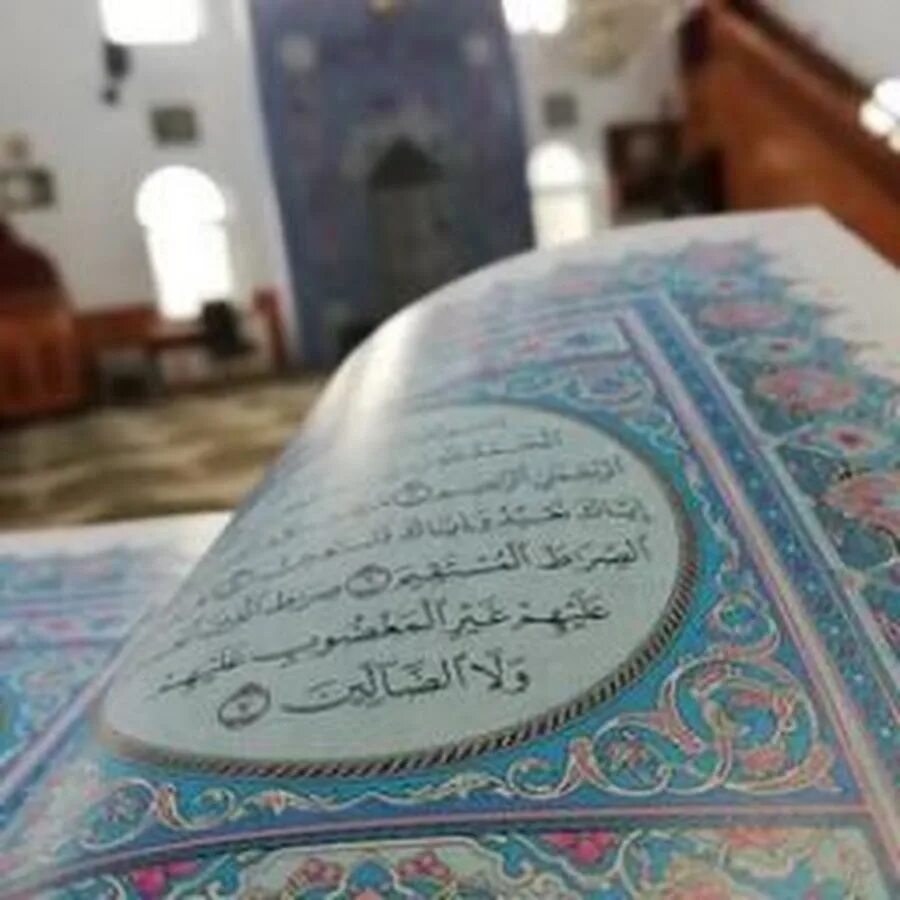 الْحَمْدُ لِلَّهِ
الرَّحْمَٰنِ الرَّحِيمِ
إِيَّاكَ نَعْبُدُ وَإِيَّاكَ نَسْتَعِينُ
الصِّرَاطَ الْمُسْتَقِيمَ ٦ صِرَاطَ الَّذِينَ
عَلَيْهِمْ غَيْرِ الْمَغْضُوبِ عَلَيْهِمْ
وَلَا الضَّالِّينَ ٧